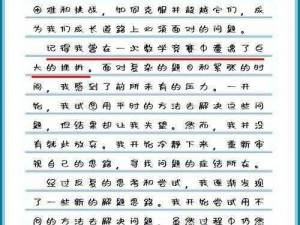 困难和挑战，如何克服并超越它们，成
为我们成长道路上必须面对的问题。
记得我曾在一次数学竞赛中遭遇了巨
大的挫折。面对复杂的题目和紧张的时
间，我感到了前所未有的压力。一开
始，我试图用平时的方法去解决这些问
题，但结果却让我失望。然而，我并没
有就此放弃。我开始冷静下来，重新审
视自己的思路，寻找问题的症结所在。
经过反复的思考和尝试，我逐渐发现
了一些新的思路。我开始尝试用不
同的方法去解决问题，虽然过程中仍然